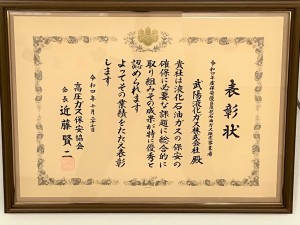 表彰状
武陽液化ガス株式会社 殿
貴社は液化石油ガスの保安の
確保に必要な課題に総合的に
取り組みその成果が特に優秀と
認められます
よってその業績をたたえ表彰
します
令和四年十月二十日
高圧ガス保安協会
会長 近藤賢二